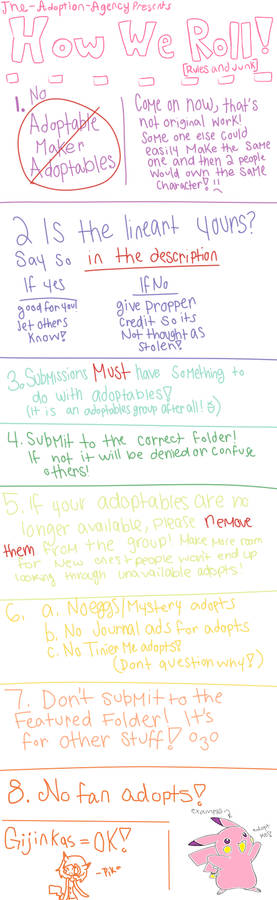 The-Adoption-Agency Presents
How We Roll!
[Rules and Junk]
1. No
Adoptable
Maker
Adoptables
Come on now, that's
not original work!
Some one else could
easily make the same
one and then 2 people
would own the same
character! !!
2 Is the lineart yours?
Say so in the description
If yes
good for you!
let others
know!
If No
give propper
credit so its
Not thought as
stolen!
3. Submissions Must have something to
do with adoptables!
(It is an adoptables group after all! :)
4. Submit to the correct folder!
If not it will be denied or confuse
others!
5. If your adoptables are no
longer available, please remove
them from the group! Make more room
for new ones & people won't end up
looking through unavailable adopts!
6. a. No eggs/Mystery adopts
b. No Journal ads for adopts
c. No Tinier Me adopts!
(Dont question why!)
7. Don't submit to the
Featured Folder! It's
for other stuff! o3o
8. No fan adopts!
Gijinkas = OK!
-Pika
example
adopt
me!